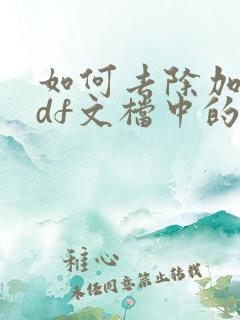 如何去除加
df文档中的
稚心
未经同意禁止转载